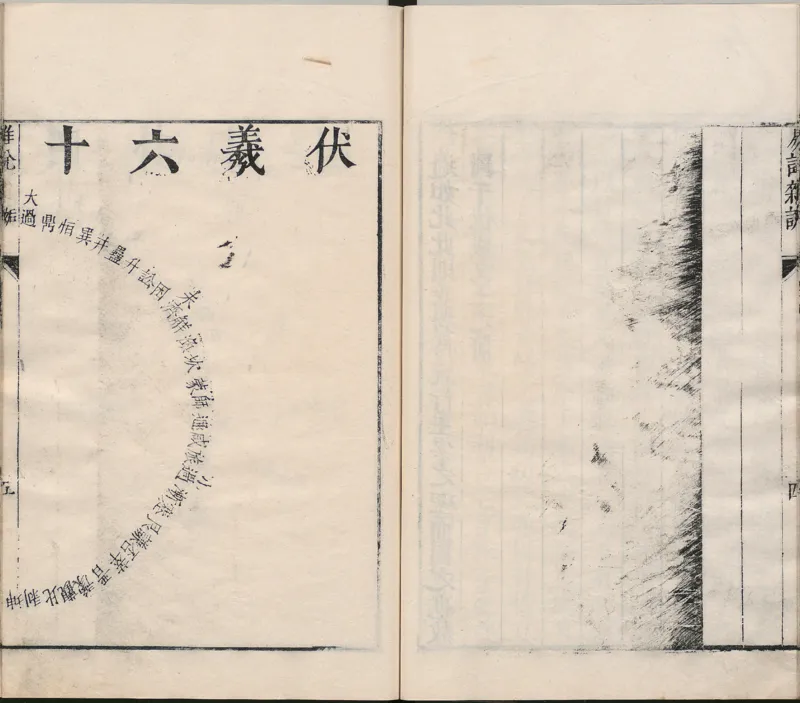 四
伏羲六十
姤大過鼎恒巽井蠱升訟困未濟解渙坎蒙師遯咸旅小過漸蹇艮謙否萃晉豫觀比剝坤
五